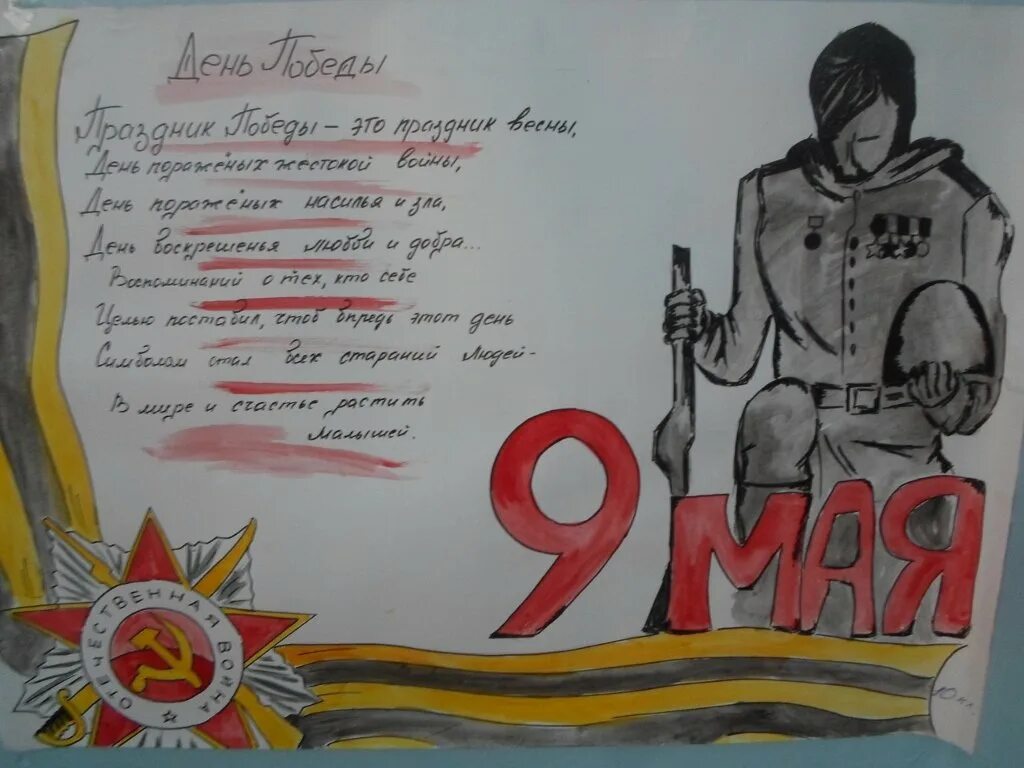 День Победы
Праздник Победы – это праздник весны,
День поражёных жестокой войны,
День поражёных насилья и зла,
День воскрешенья любви и добра...
Воспоминаний о тех, кто себе
Целью поставил, чтоб впредь этот день
Символом стал всех стараний людей-
В мире и счастье растить
малышей.
9 МАЯ
ОТЕЧЕСТВЕННАЯ ВОЙНА
10 кл.